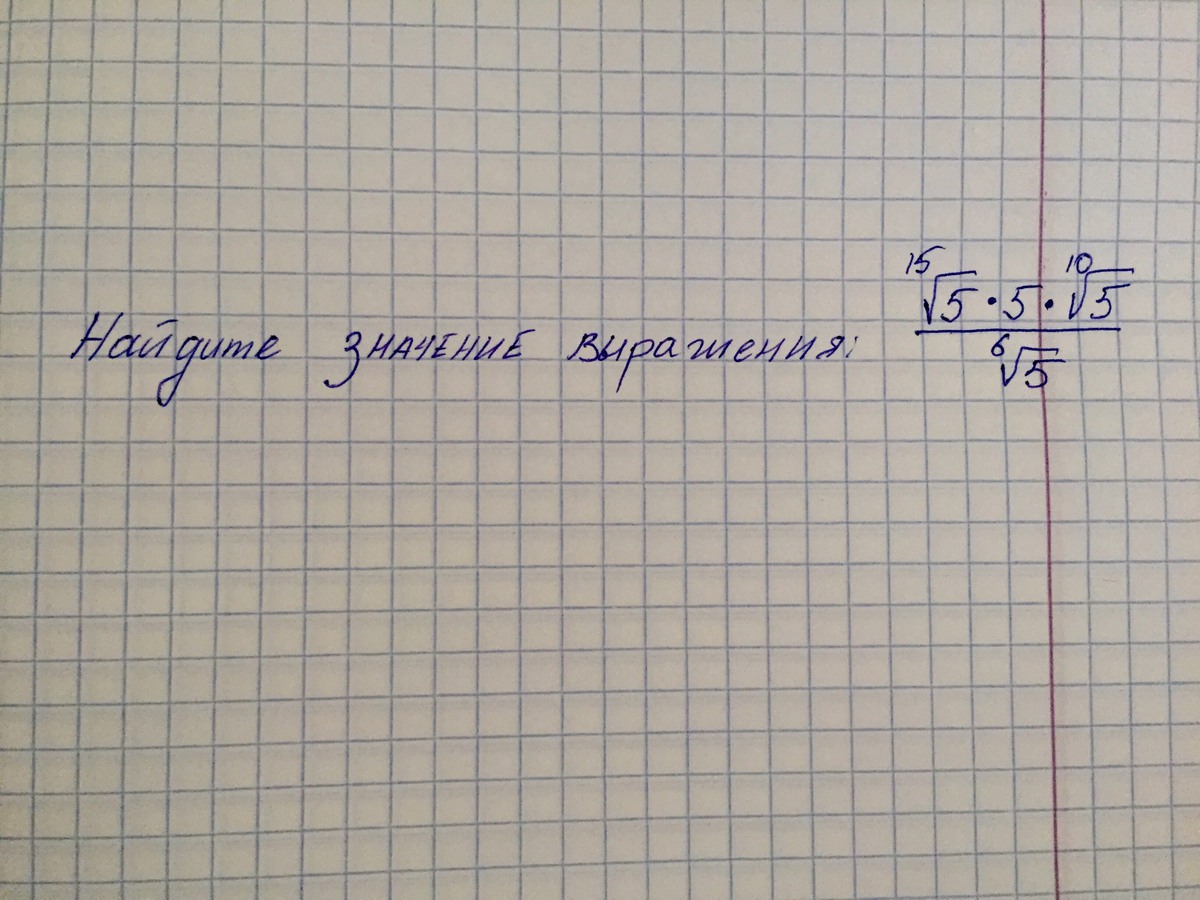 Найдите значение выражения: $\frac{\sqrt[15]{5} \cdot 5 \cdot \sqrt[10]{5}}{\sqrt[6]{5}}$